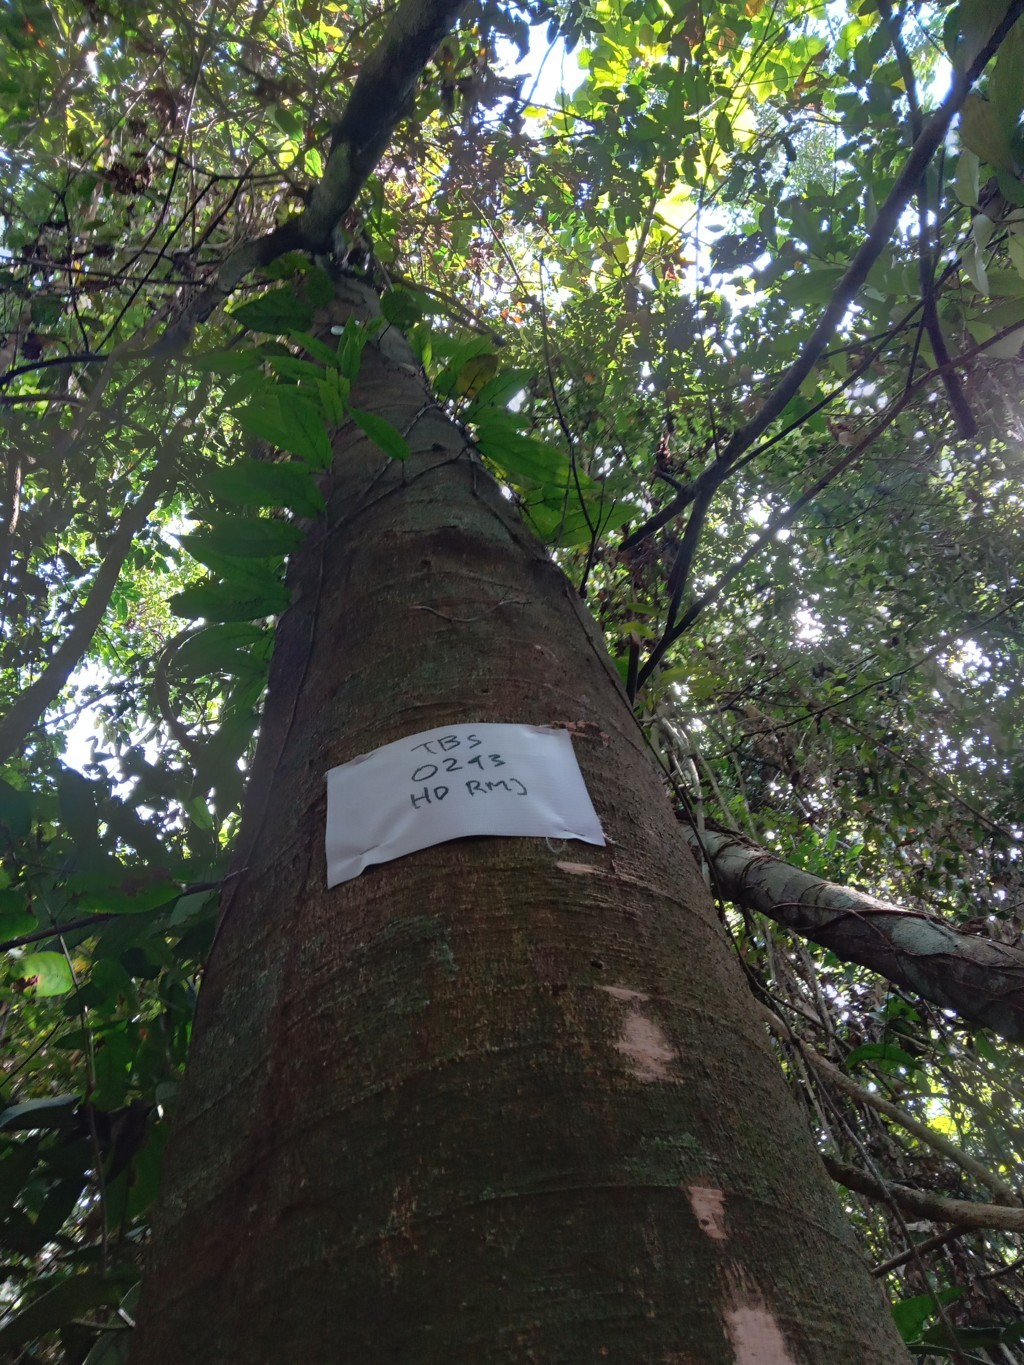 TBS
0293
HD RMJ